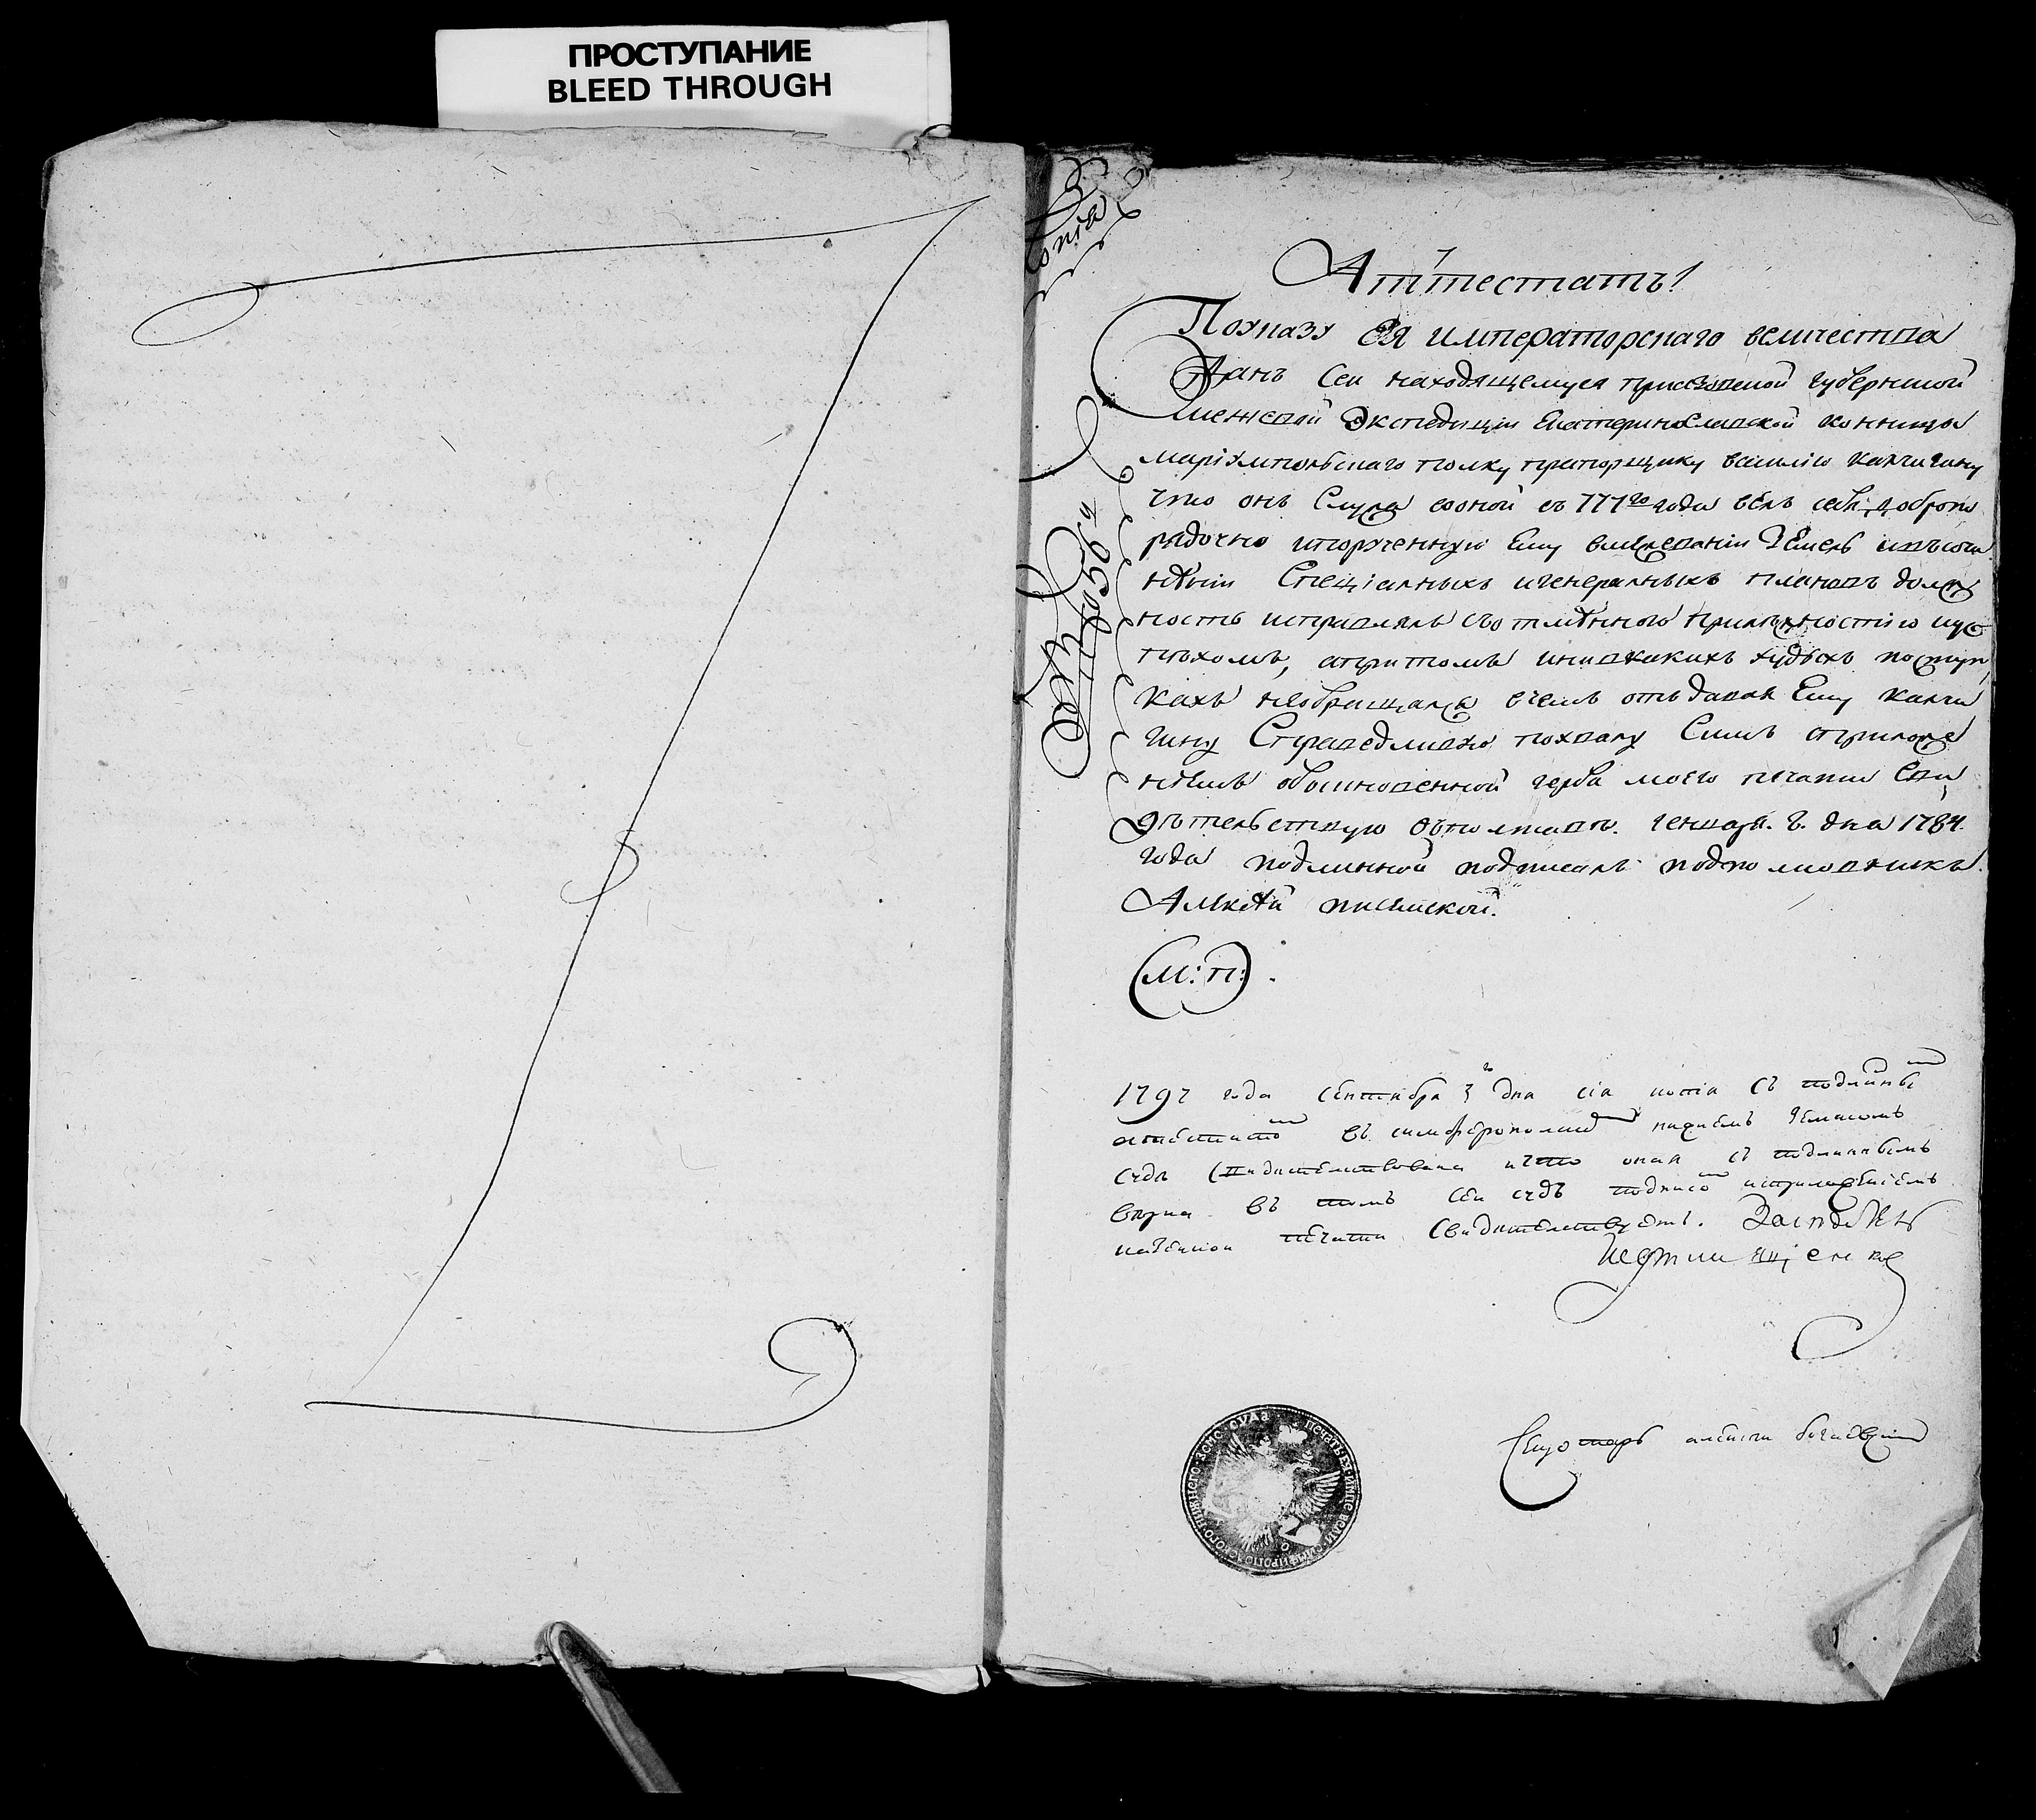 ПРОСТУПАНИЕ
BLEED THROUGH
копіа
Аттестатъ
Поуказу ЕЯ императорскаго величества
Данъ сей находящемуся при губернской
межевой Экспедиции Екатеринославской конницы
маріумпольскаго полку прапорщику василію калчигину
что онъ служа воной съ 777го года велъ себя добропо
рядочно ипорученную Ему вмежевании Земель
неніи Спеціалныхъ игенералныхъ плановъ долж
ность исправлялъ съотменною прилѣжностію иус
пѣхомъ, апритомъ инивкакихъ худыхъ поступ
кахъ необращался вчемъ отъдавая Ему калчи
гину Справедливую похвалу Симъ априложе
ніемъ обыкновенной герба моего печати сви
дѣтельствую генваря. 2. дня 1784.
года подлинной подписалъ подполковникъ
Алѣксѣй писемской.
(М: п:).
1797 года сентября 3го дня сіа копіа съ подлинны
аттестато въ симферополско нижнемъ земскомъ
суде свидетелствована ичто оная съ подлиннымъ
верна въ томъ сей судъ подписо иприложеніемъ
казенной печати свидетелствуетъ. Заседатель
Секретарь алексей